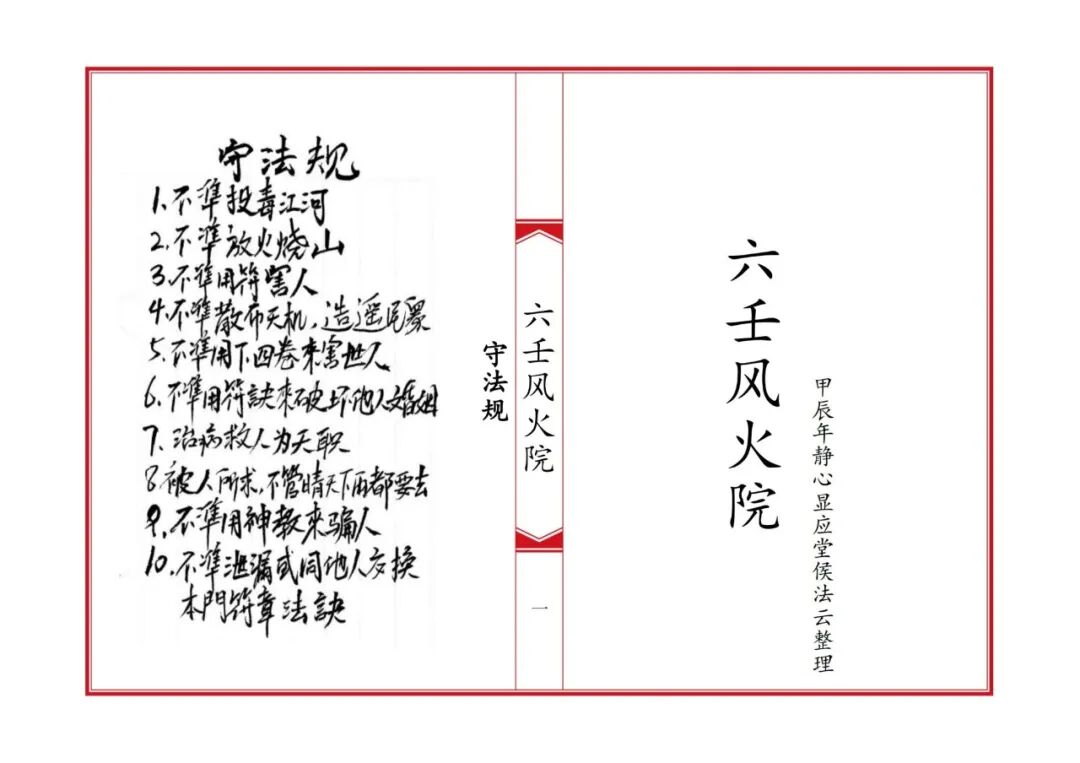 六壬风火院
甲辰年静心显应堂侯法云整理
六壬风火院
一
守法规
守法规
1.不準投毒江河
2.不準放火烧山
3.不準用符害人
4.不準散布天机，造遥民眾
5.不準用下四卷来害世人
6.不準用符訣来破坏他人婚姻
7.治病救人为天职
8.被人所求，不管晴天下雨都要去
9.不準用神教来骗人
10.不準泄漏或同他人交换
本門符章法訣